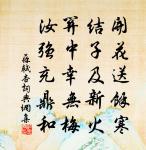 開花送餘寒
結子及新火
關中幸無梅
汝強充鼎和
蘇軾杏詞典網集